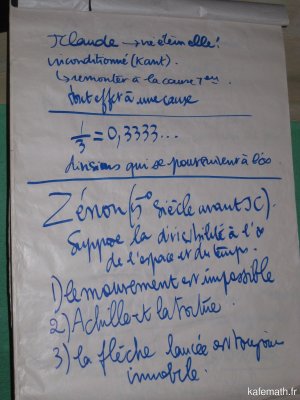 JClaude → vie éternelle!
inconditionné (Kant).
↳ remonter à la cause 1ère.
tout effet a une cause
1/3 = 0,3333...
divisions qui se poursuivent à l'∞.
Zénon (5° siècle avant JC).
Suppose la divisibilité à l'∞
de l'espace et du temps.
1) le mouvement est impossible
2) Achille et la tortue.
3) la flèche lancée est toujours
immobile.
kafemath.fr